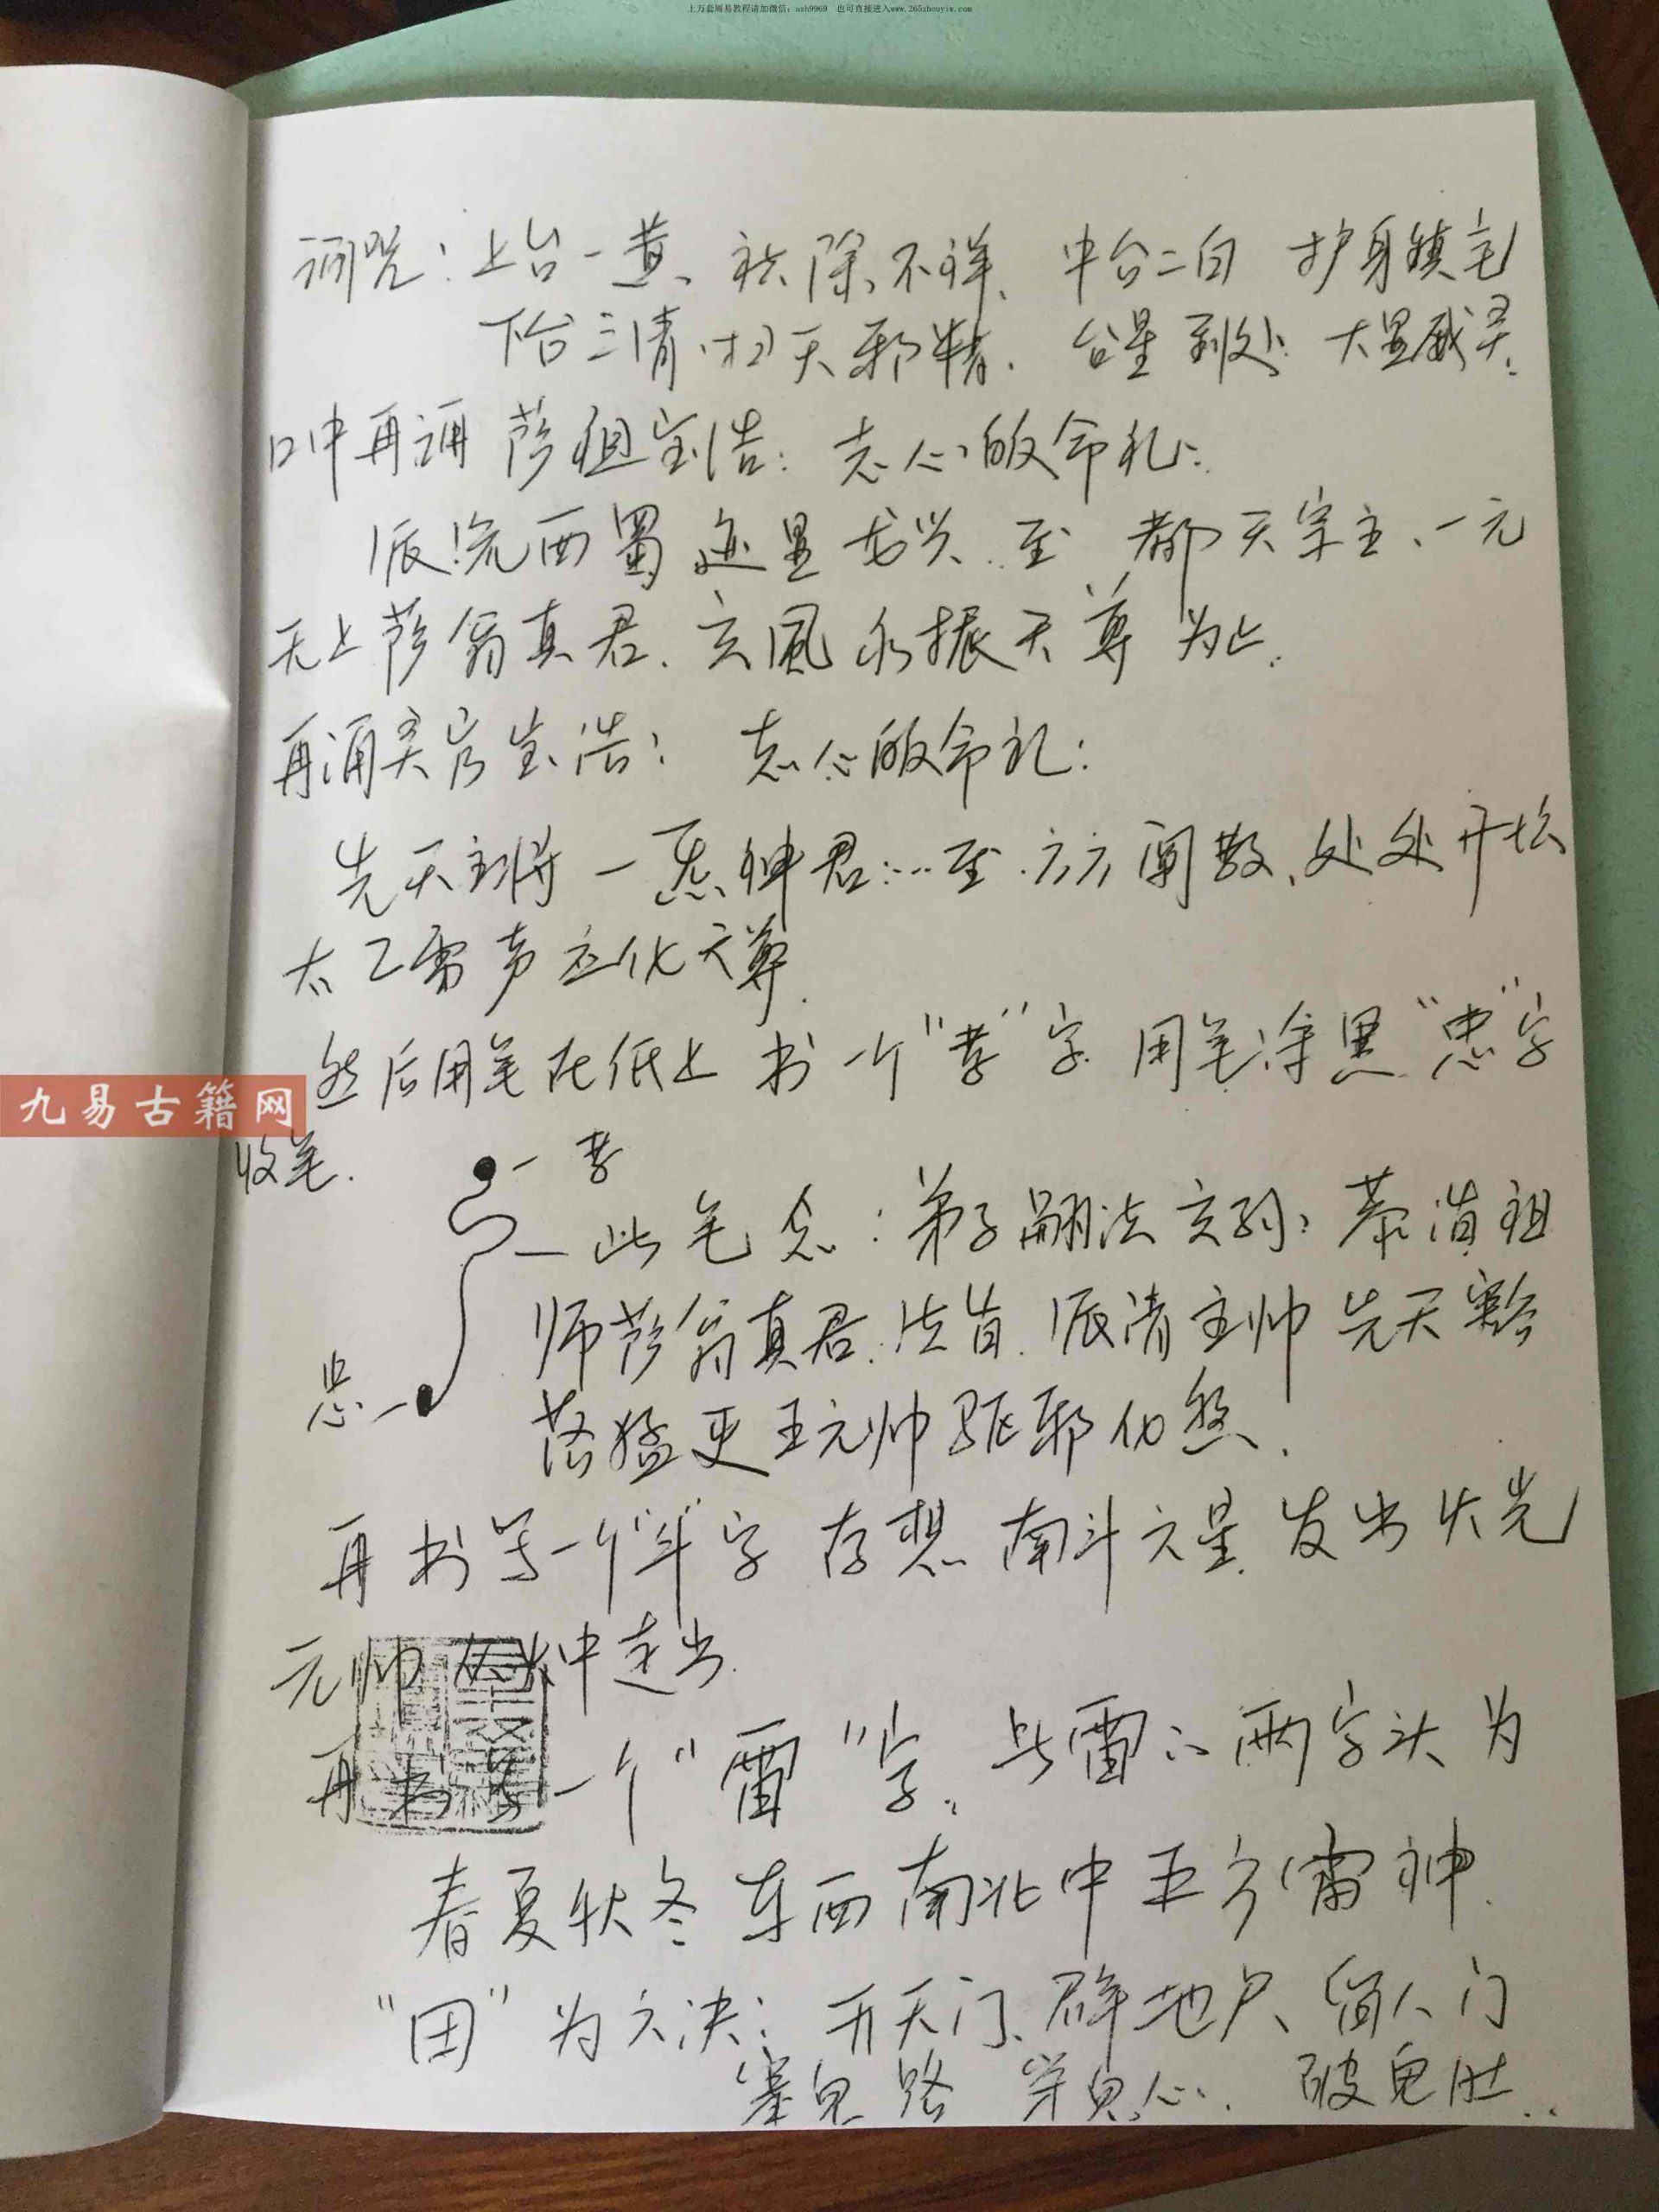 上万套周易教程请加微信：azh9969 也可直接进入www.265zhouyim.com
诵咒：上台一黄、祛除不祥、中台二白 护身镇宅
下台三清 扫天邪精. 台星到处 大显威灵.
口中再诵 萨祖宝诰：志心皈命礼：
派流西蜀 迹显龙兴 至 都天宗主、一元
无上萨翁真君、玄風永振天尊 为止.
再诵灵官宝诰：志心皈命礼：
先天主将 一炁神君：…至 方方阐教、处处开坛
太乙雷声应化天尊.
然后用笔在低上 书一个“孝”字 用笔涂黑“忠”字
九易古籍网
收笔.
一孝
一此笔念：弟子嗣法玄孙：恭请祖
师萨翁真君.法旨.派请主帅 先天豁
落猛吏王元帅 驱邪伐煞.
忠一
再书写一个“斗”字 存想 南斗六星 发出火光
元帅从火中走出.
再书写一个“雷”字. 此雷 两字头为
春夏秋冬 东西南北中五方雷神.
“田”为六决：开天门、辟地户、留人门
塞鬼路 穿鬼心. 破鬼肚..